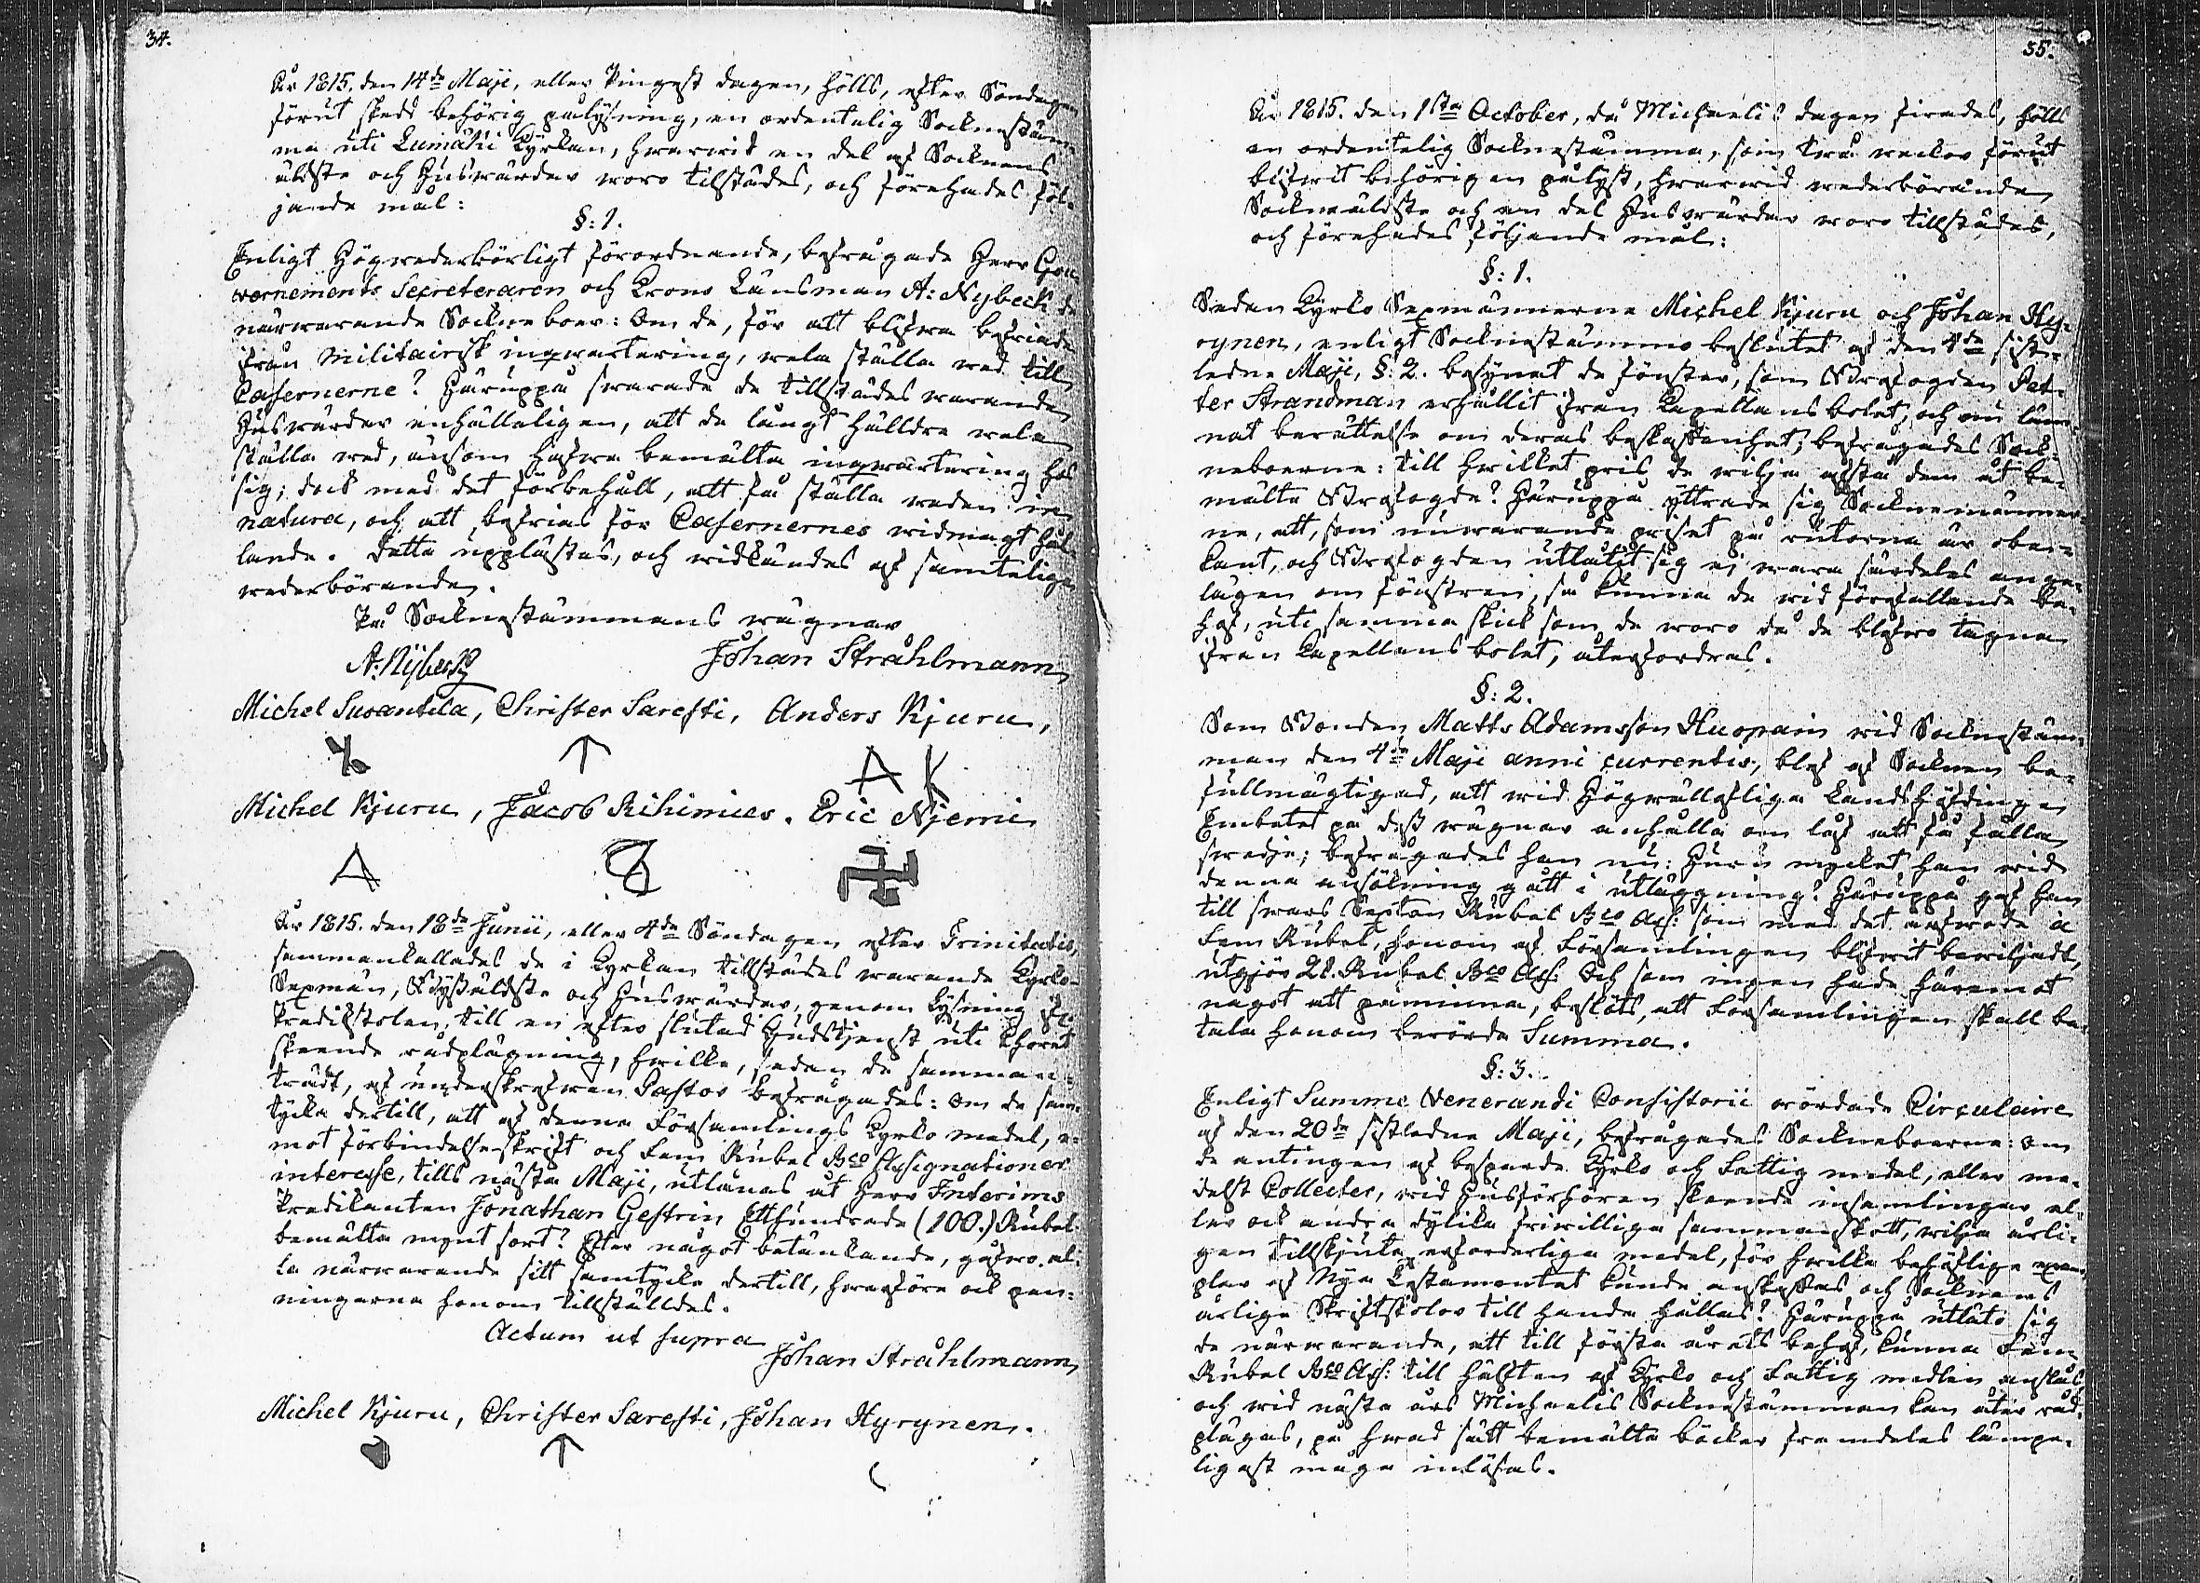 34.
År 1815. den 14de Maji, eller Pingest dagen, hölls, efter Söndagen
förut skedd behörig pålysning, en ordentelig Socknestäm-
ma uti Lumäki Kyrkan, hvarvid en del af Socknens
äldste och Huswärdar woro tilstädes, och förehades föl-
jande mål:
§: 1.
Enligt Högwederbörligt förordnande, befrågade Herr Gou-
vernements Secreteraren och Krono Länsman A: Nybeck de
närwarande Sockneboer: Om de, för att blifwa befriade
från Militairisk inqvartering, wela ställa wed till
Casernerne? Häruppå swarade de tillstädes warande
Huswärdar enhälleligen, att de långt hälldre wela
ställa wed, änsom hafwa bemälta inqwartering hos
sig; dock med det förbehåll, att få ställa weden in
natura, och att befrias för Casernernes widmagthål-
lande. Detta upplästes, och widkändes af samtelige
wederbörande.
På Socknestämmans wägnar
A. Nybeck Johan Strahlmann
Michel Suvantila, Christer Saresti, Anders Kjuru,
A K
Michel Kjuru, Jacob Rihimies. Eric Njemi
År 1815. den 18de Junii, eller 4de Söndagen efter Trinitatis,
sammankallades de i Kyrkan tillstädes warande Kyrko-
Sexmän, Byßäldste och Huswärdar, genom lysning fr.
Predikstolen, till en efter slutad Gudstjenst uti Choret
skeende rådplägning, hwilka, sedan de samman-
trädt, af underskrefwen Pastor befrågades: Om de sam-
tycka dertill, att af denna Församlings Kyrko medel, e-
mot förbindelseskrift och Fem Rubel Bco Assignationer
interesse, tills nästa Maji, utlånas åt Herr Interims
Predikanten Jonathan Gestrin Etthundrade (100.) Rubel
bemälta myntsort? Efter något betänkande, gåfwo al-
la närwarande sitt samtycke dertill, hwarföre ock pen-
ningarna honom tillställdes.
Actum ut supra
Johan Strahlmann
Michel Kjuru, Christer Saresti, Johan Hyrynen.
35.
År 1815. den 1sta October, då Michaeli dagen firades, hölls
en ordentelig Socknestämma, som twå weckor förut
blifwit behörigen pålyst, hwarwid wederbörande
Sockneäldste och en del Huswärdar woro tillstädes,
och förehades följande mål:
§: 1.
Sedan Kyrko Sexmännerne Michel Kjuru och Johan Hy-
rynen, enligt Socknestämmo beslutet af den 4de sist-
ledne Maji, §: 2. besynat de fönster, som Brofogden Pet-
ter Strandman erhållit från Capellans bolet, och nu läm-
nat berättelse om deras beskaffenhet; befrågades Sock-
neboerne: till hwilket pris de wilja afstå dem åt be-
mälte Brofogde? Häruppå yttrade sig Socknemänner-
ne, att, som nuwarande priset på rutorna är obe-
kant, och Brofogden utlåtit sig ej wara särdeles ange-
lägen om fönstren, så kunna de wid förefallande be-
hof, uti samma skick som de woro då de blefwo tagna
från Capellansbolet, återfordras.
§: 2.
Som Bonden Matts Adamsson Huopain wid Socknestäm-
man den 4de Maji anni currentis, blef af Socknen be-
fullmägtigad, att wid Högwälloflige Landshöfdinge
Embetet på dess wägnar anhålla om lof att få fälla
swedje; befrågades han nu: Huru mycket han wid
denna ansökning gått i utläggning? Häruppå gaf han
till swars Sexton Rubel Bco Ass: som med det arfwode à
Fem Rubel, honom af Församlingen blifwit bewiljadt,
utgjör 21. Rubel Bco Ass: Och som ingen hade häremot
något att påminna, beslöts, att Församlingen skall be-
tala honom berörde Summa.
§: 3.
Enligt Summe Venerandi Consistorii wördade Circulaire
af den 20de sistledne Maji, befrågades Sockneboerne: Om
de antingen af besparde Kyrko och Fattig medel, eller me-
delst Collecter, wid Husförhören skeende insamlingar el-
ler ock andra dylika friwilliga sammanskott, wilja årli-
gen tillskjuta erforderliga medel, för hwilka behöfliga exem-
plar af Nya Testamentet kunde anskaffas och Socknens
årliga Skriftskolor till handa hållas? Häruppå utläto sig
de närwarande, att till första årets behof, kunna Fem
Rubel Bco Ass: till hälften af Kyrko och Fattig medlen anslås,
och wid nästa års Michaelis Socknestämman kan åter råd-
plägas, på hwad sätt bemälta böcker framdeles lämpe-
ligast måge inlösas.